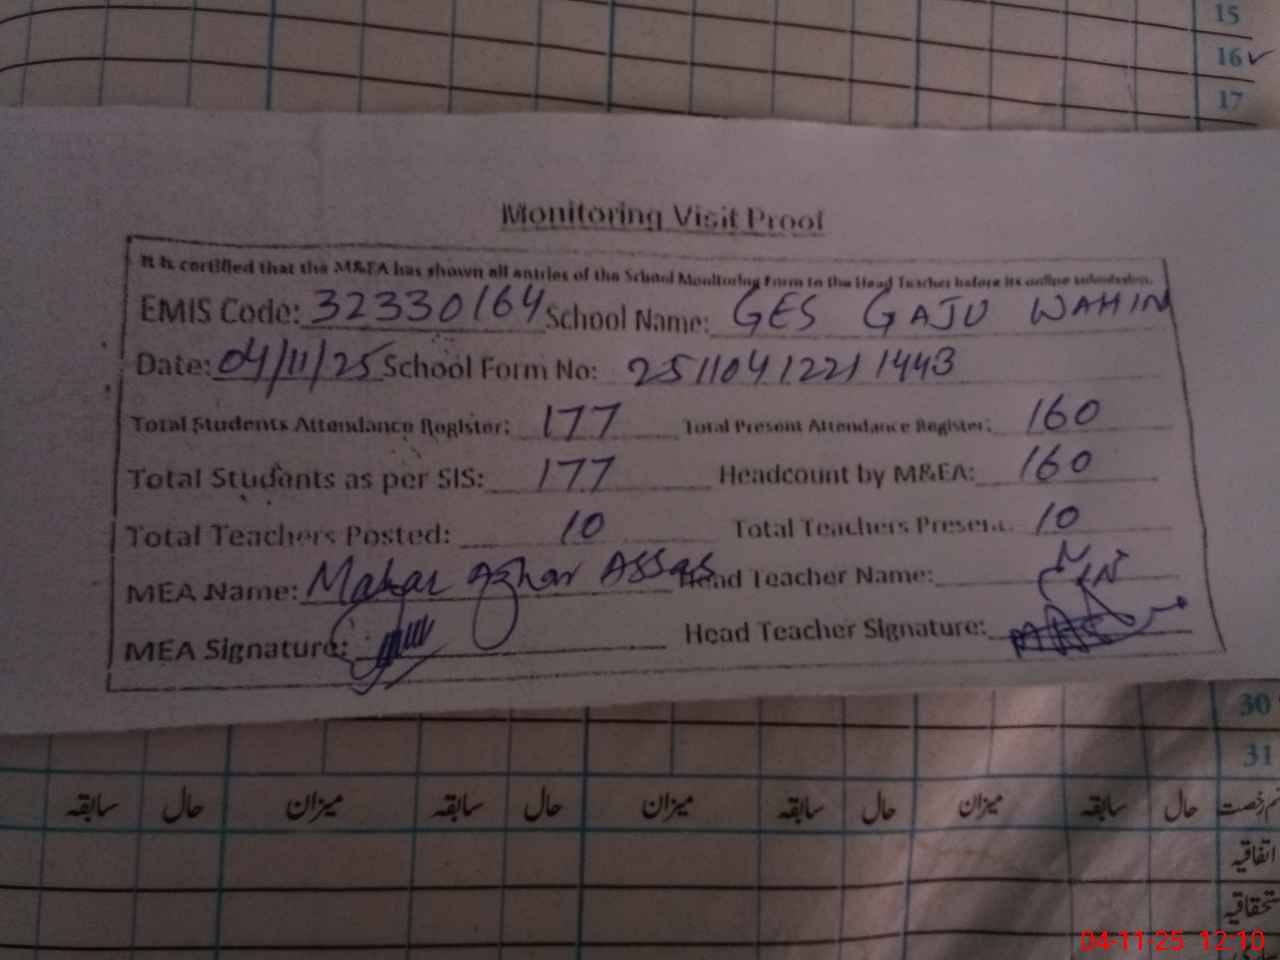 15
16 ✓
17
Monitoring Visit Proof
It is certified that the M&EA has shown all entries of the School Monitoring Form to the Head Teacher before its online submission.
EMIS Code: 32330164 School Name: GES GAJU WAHIN
Date: 04/11/25 School Form No: 25110412211443
Total Students Attendance Register: 177 Total Present Attendance Register: 160
Total Students as per SIS: 177 Headcount by M&EA: 160
Total Teachers Posted: 10 Total Teachers Present: 10
MEA Name: Mahar Azhar Abbas Head Teacher Name:
MEA Signature: Head Teacher Signature:
30
31
سابقہ حال میزان سابقہ حال میزان سابقہ حال میزان سابقہ حال رخصت
اتفاقیہ
04-11-25 12:10